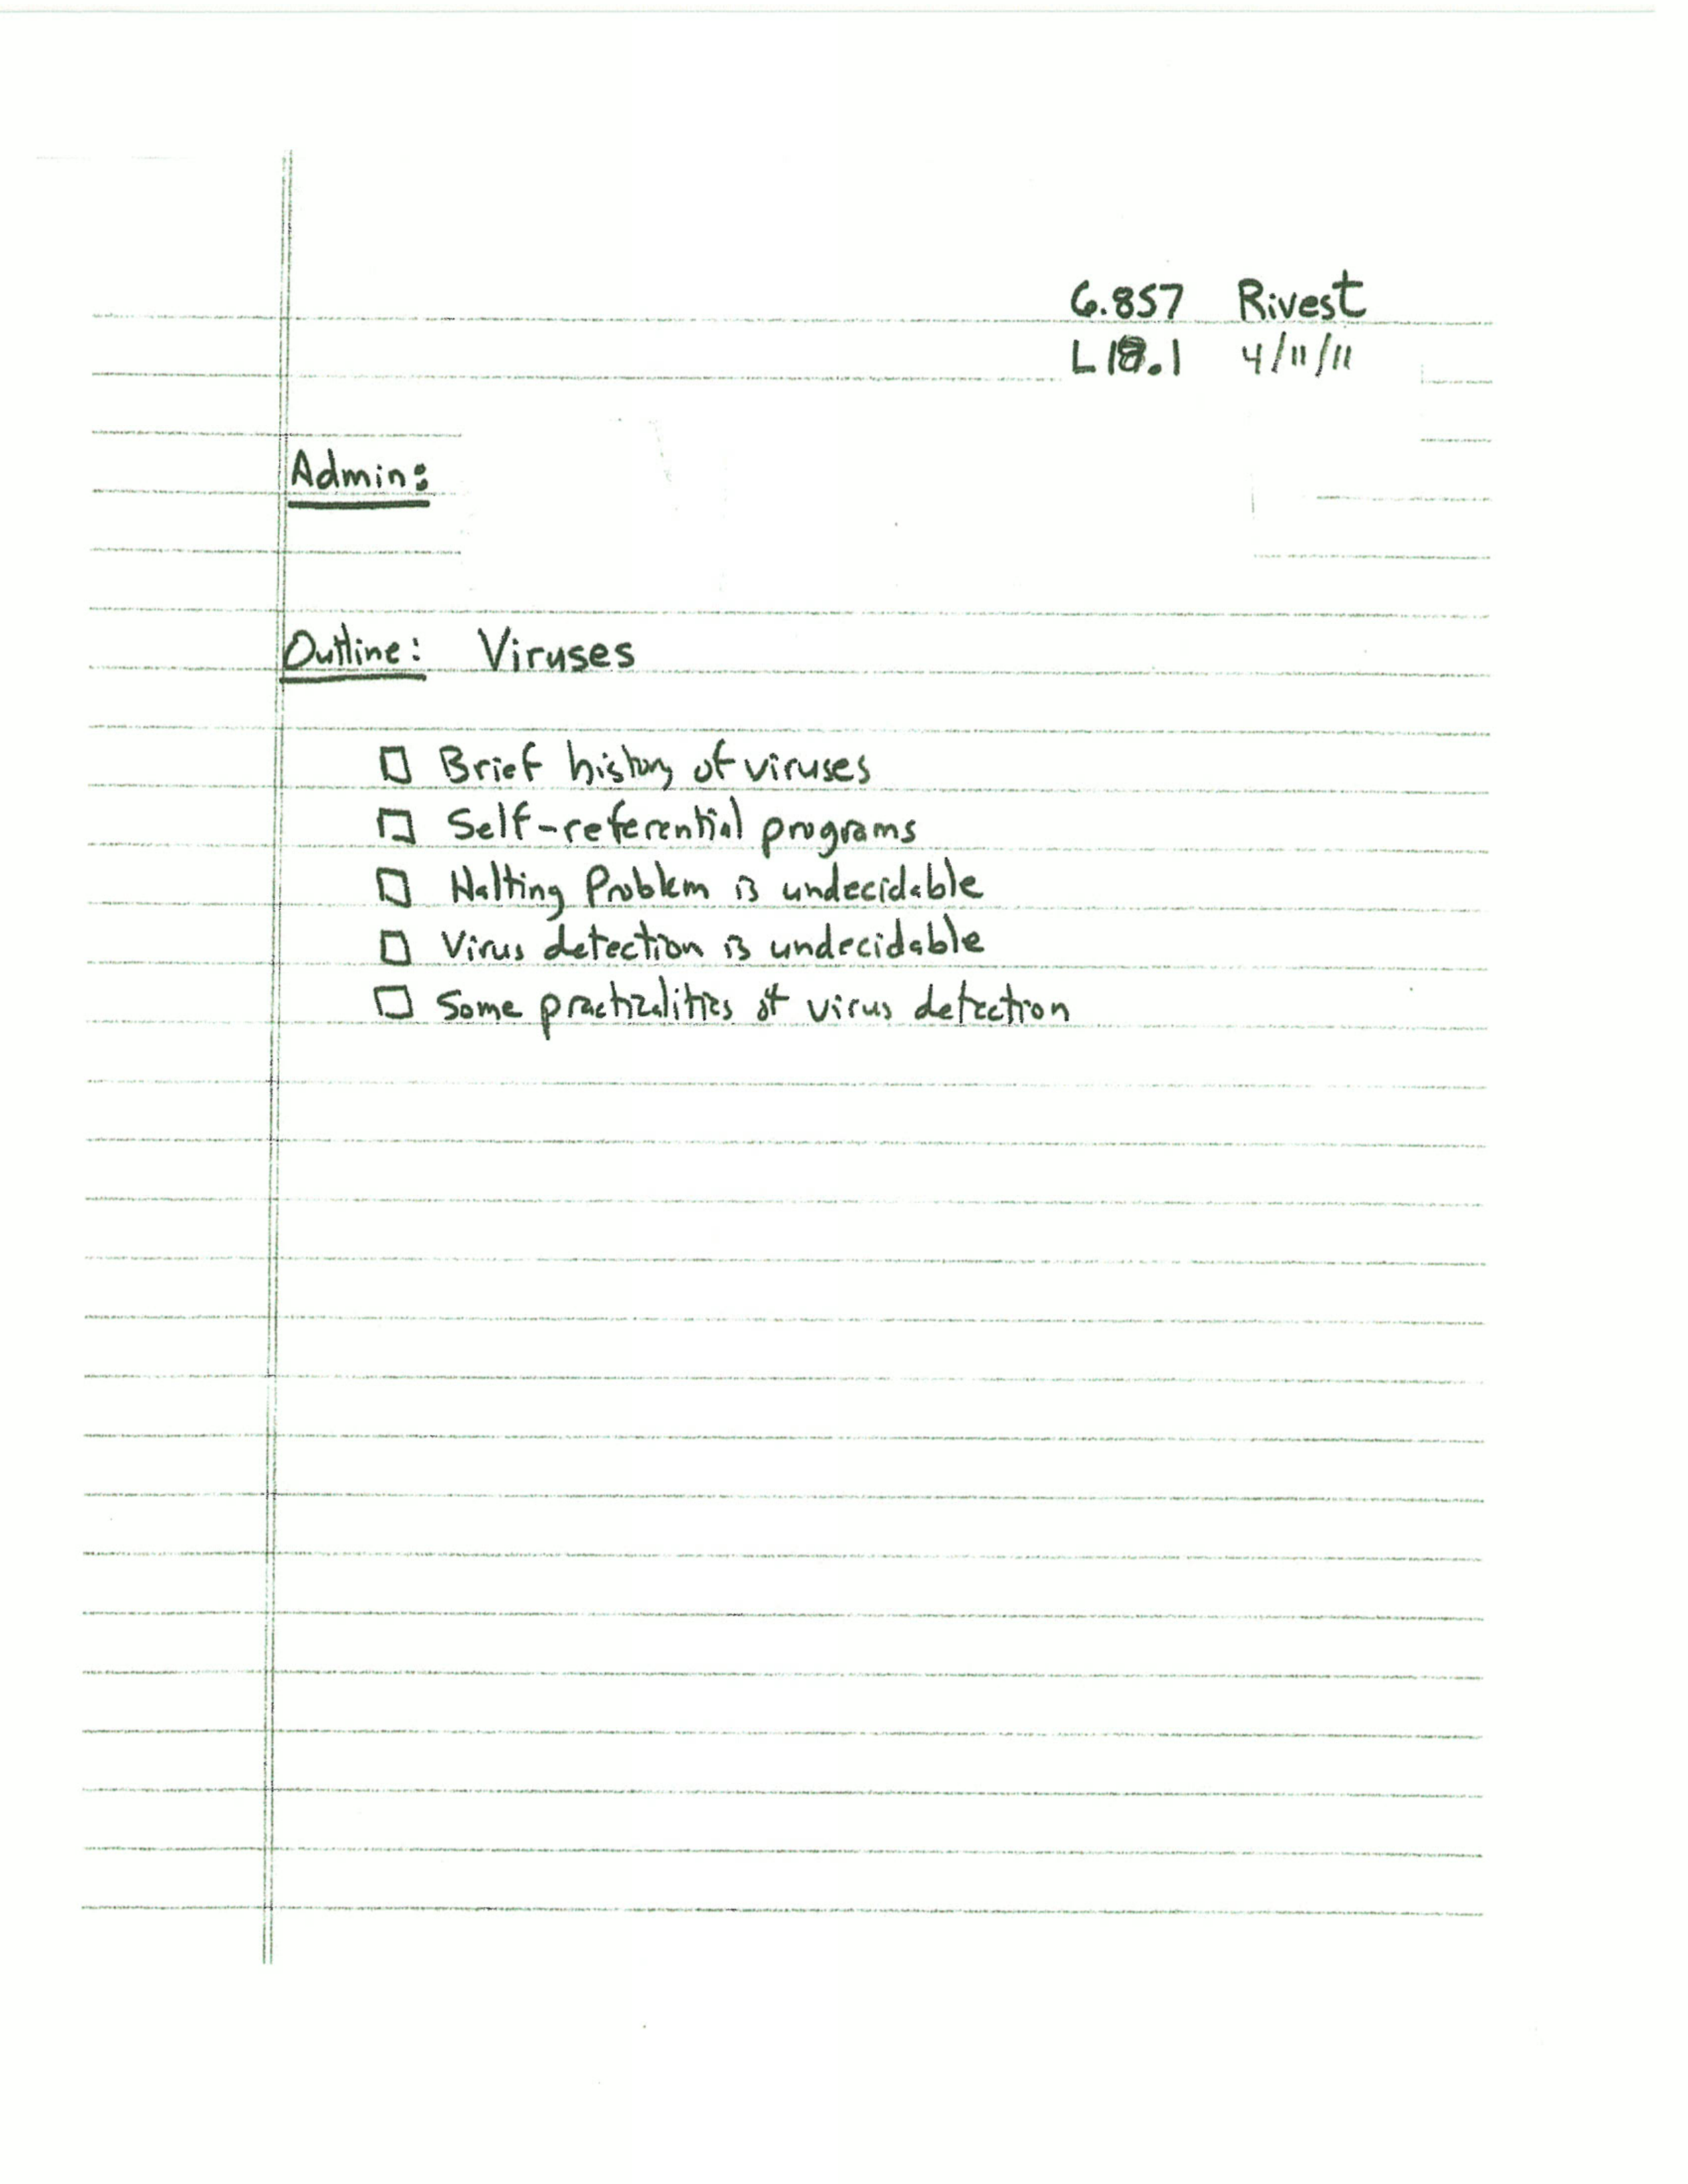 6.857 Rivest
4/11/11
Admin:
Outline: Viruses
☐ Brief history of viruses
☐ Self-referential programs
☐ Halting Problem is undecidable
☐ Virus detection is undecidable
☐ Some practicalities of virus detection